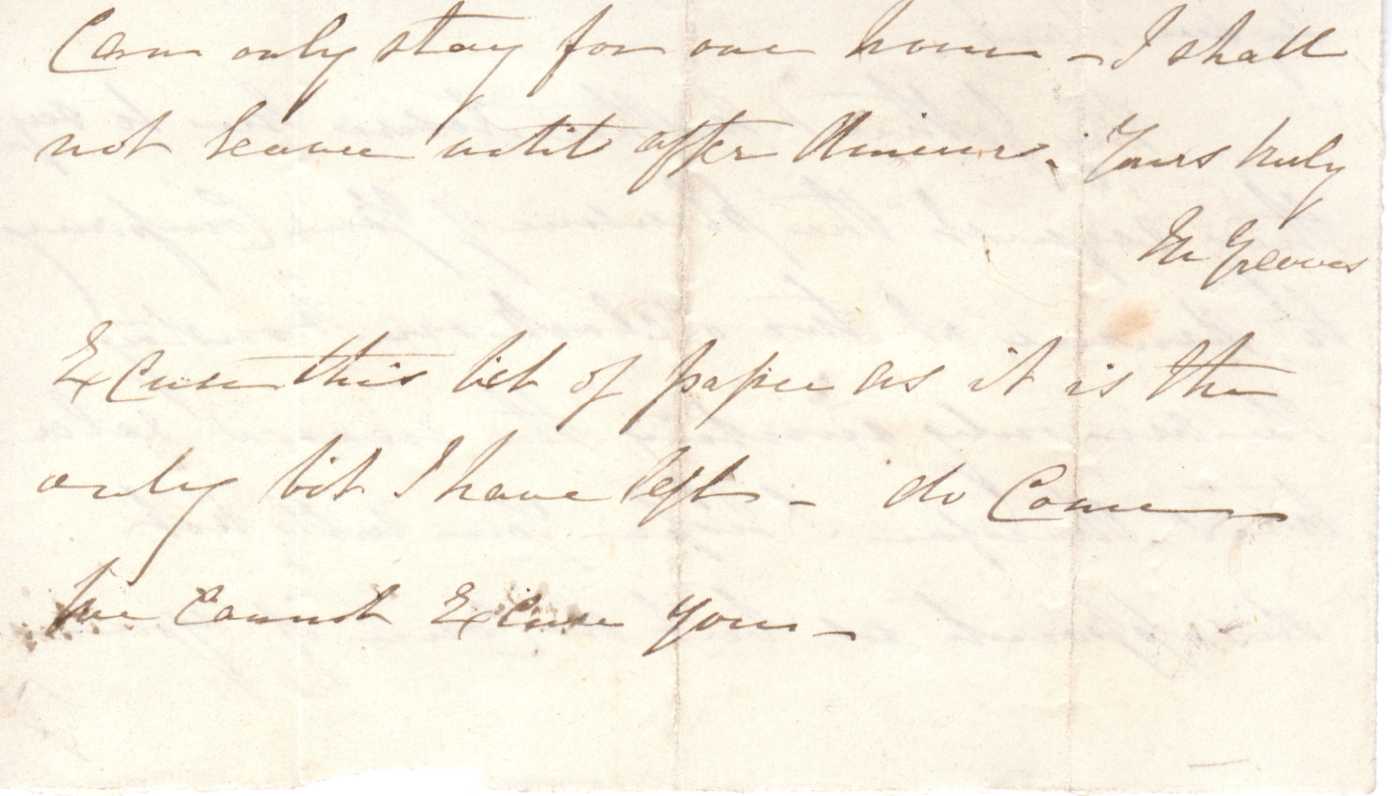 Can only stay for one hour – I shall
not leave until after dinner. Yours truly
M Greaves
Excuse this bit of paper as it is the
only bit I have left – do Come
we Cannot Excuse you –